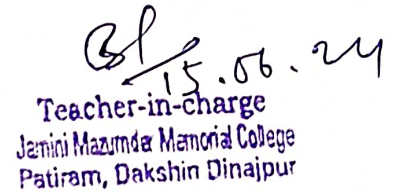 15.06.24
Teacher-in-charge
Jamini Mazumdar Memorial College
Patiram, Dakshin Dinajpur